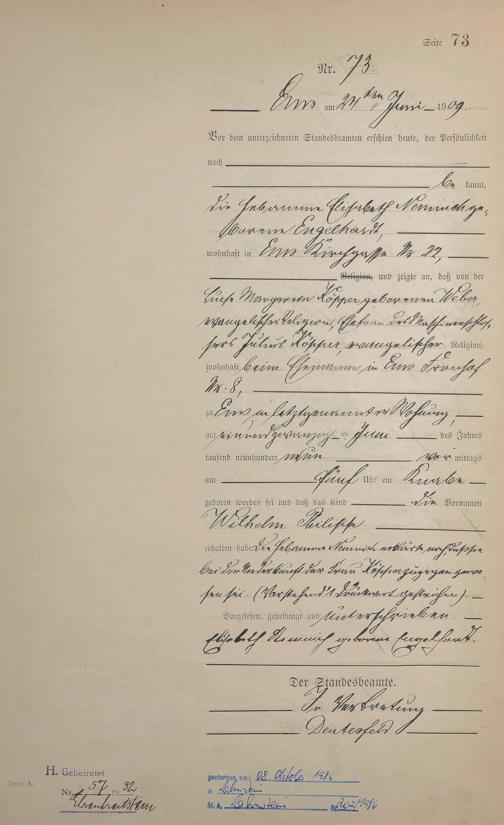 Seite 73
Nr. 73.
Ems am 24ten Juni 1909.
Vor dem unterzeichneten Standesbeamten erschien heute, der Persönlichkeit
nach
be kannt,
die Hebamme Elisabeth Nennich ge-
borene Engelhardt,
wohnhaft in Ems Kirchgasse Nr 22,
Religion, und zeigte an, daß von der
Luise Margereta Köpper geborenen Weber,
evangelischer Religion, Ehefrau des Maschinenschlos-
sers Julius Köpper, evangelischer Religion,
wohnhaft beim Ehemanne in Ems Fronhof
Nr. 8,
zu Ems in letztgenannter Wohnung,
am einundzwanzig ten Juni des Jahres
tausend neunhundert neun vor mittags
um fünf Uhr ein Knabe
geboren worden sei und daß das Kind die Vornamen
Wilhelm Philipp
erhalten habe. Die Hebamme Nennich erklärte noch, daß sie
bei der Niederkunft der Frau Köpper zugegen gewe-
sen sei. (Vorstehend 1 Druckwort gestrichen).
Vorgelesen, genehmigt und unterschrieben
Elisabeth Nennich geborene Engelhardt.
Der Standesbeamte.
In Vertretung
H. Geheiratet
Nr. 57 1932
Ehrenbreitstein
gestorben am: 08. Oktober 1986
in Lahnstein
St. A. Lahnstein Nr. 302/1986